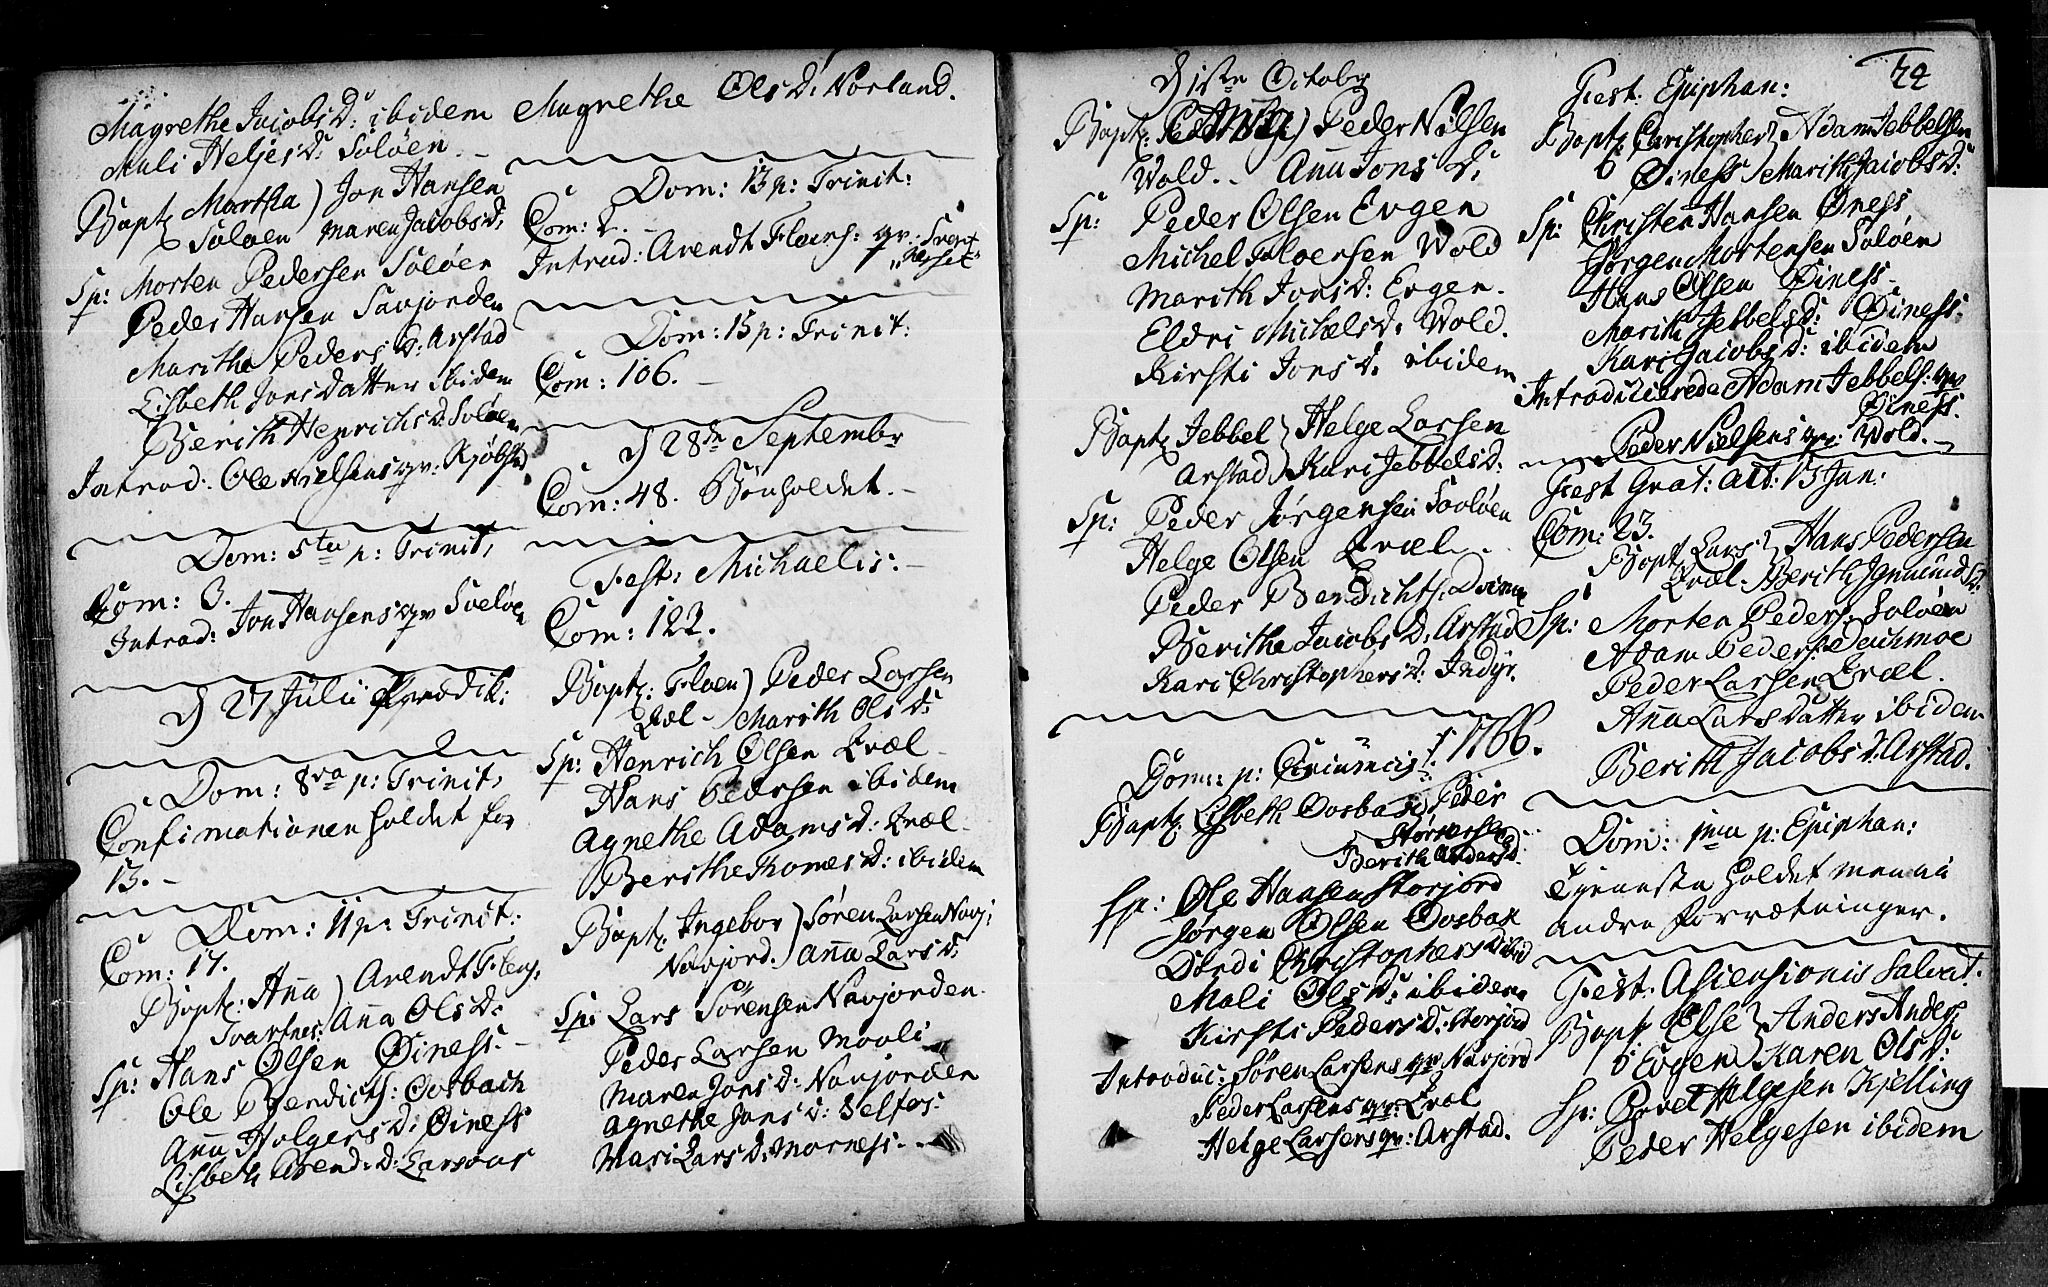 Magrethe Jacobs D: ibidem
Mali Heljes D: Soløen
Bapt: Martha) Jon Hansen
Soløen Maren Jacobs D:
Sp: Morten Pedersen Soløen
Peder Hansen Savjorden
Marithe Peders D: Arstad
Lisbeth Jonsdatter ibidem
Berith Henrichs D. Soløen
Introd: Ole Nielsens qv:
Dom: 5ta p: Trinit:
Com: 3.
Introd: Jon Hansens qv Soeløen
D 27 Julii Prædik:
Dom: 8va p: Trinit:
Confimationen holdet for
13. -
Dom: 11 p: Trinit:
Com: 17.
Bapt: Aña) Arendt
Svartnes: Aña Ols D:
Sp: Hans Olsen Øiness. -
Ole Bendichs: Osbach
Aña Holgers D: Øiness
Lisbeth Arend: D: Larsoas
Magnethe Ols D: Norland.
Dom: 13 p: Trinit:
Com: 2. -
Introd: Arendt Floers: qv:
Dom: 15 p: Trinit:
Com: 106. -
D 28de Septembr
Com: 48. Bön holdet. -
Fest: Michaelis: -
Com: 122.
Bapt: Floen) Peder Larsen
Evæl - / Marith Ols D:
Sp: Henrich Olsen Evæl -
Hans Pedersen ibidem
Agnethe Adams D: Evæl -
Berithe Thomes D: ibidem
Bapt: Ingebor) Søren Larsen Navj:
Navjord.) Aña Lars D:
Sp: Lars Sørensen Navjorden.
Peder Larsen Mooli -
Maren Jons D: Navjorden
Agnethe Jans D: Selfos:
Mari Lars D: Morness. -
74
D 1ste Octobr
Bapt: Anna) Peder Nilsen
Vold. - Aña Jons D:
Sp: Peder Olsen Evgen
Michel Floersen Vold
Marith Jons D: Evgen -
Eldri Michels D: Vold.
Kirsti Jons D: ibidem
Bapt: Jebbel } Helge Larsen
Arstad } Kari Jebbels D:
Sp: Peder Jørgensen Sooløen
Helge Olsen Evæl -
Peder Bendichts:
Berithe Jacobs D: Arstad
Kari Christophers D: Indyr.
1766.
Dom: p: Circumcis:
Bapt: Lisbeth Oosbak) Peder
Størcersen
Berith Anders D:
Sp: Ole Hansen Storjord
Jørgen Olsen Oosbak
Dordi Christophers D: ibid
Mali Ols D: ibidem
Kirsti Peders D: Storjord
Introduc: Søren Larsens qv Navjord
Peder Larsens qv: Evæl
Helge Larsens qv: Arstad.
Fest: Epiphan:
Bapt: Christopher } Adam Jebbelsen
Øiness / Marith Jacobs D:
Sp: Christen Hansen Øness
Jørgen Mortensen Soløen
Hans Olsen Øiness -
Marith Jebbels D: Øiness.
Kari Jacobs D: ibidem
Introducerede Adam Jebbels: qv
Øiness.
Peder Nielsens qv: Vold. -
Fest Grat: Act: 13 Jan:
Com: 23.
Bapt: Lars } Hans Pedersen
Evæl - Berith Jgmund D:
Sp: Morten Peders: Soløen
Adam Peders: Deichmoe
Peder Larsen Evæl.
Aña Larsdatter ibidem
Berith Jacobs D. Arstad.
Dom: 1ma p: Epiphan:
Tjenesten holdet men ei
andre forrætninger.
Fest: Ascensionis Salvat.
Bapt: Else } Anders Anders
Evgen } Karen Ols D:
Sp: Povel Helgesen Kjelling
Peder Helgesen ibidem